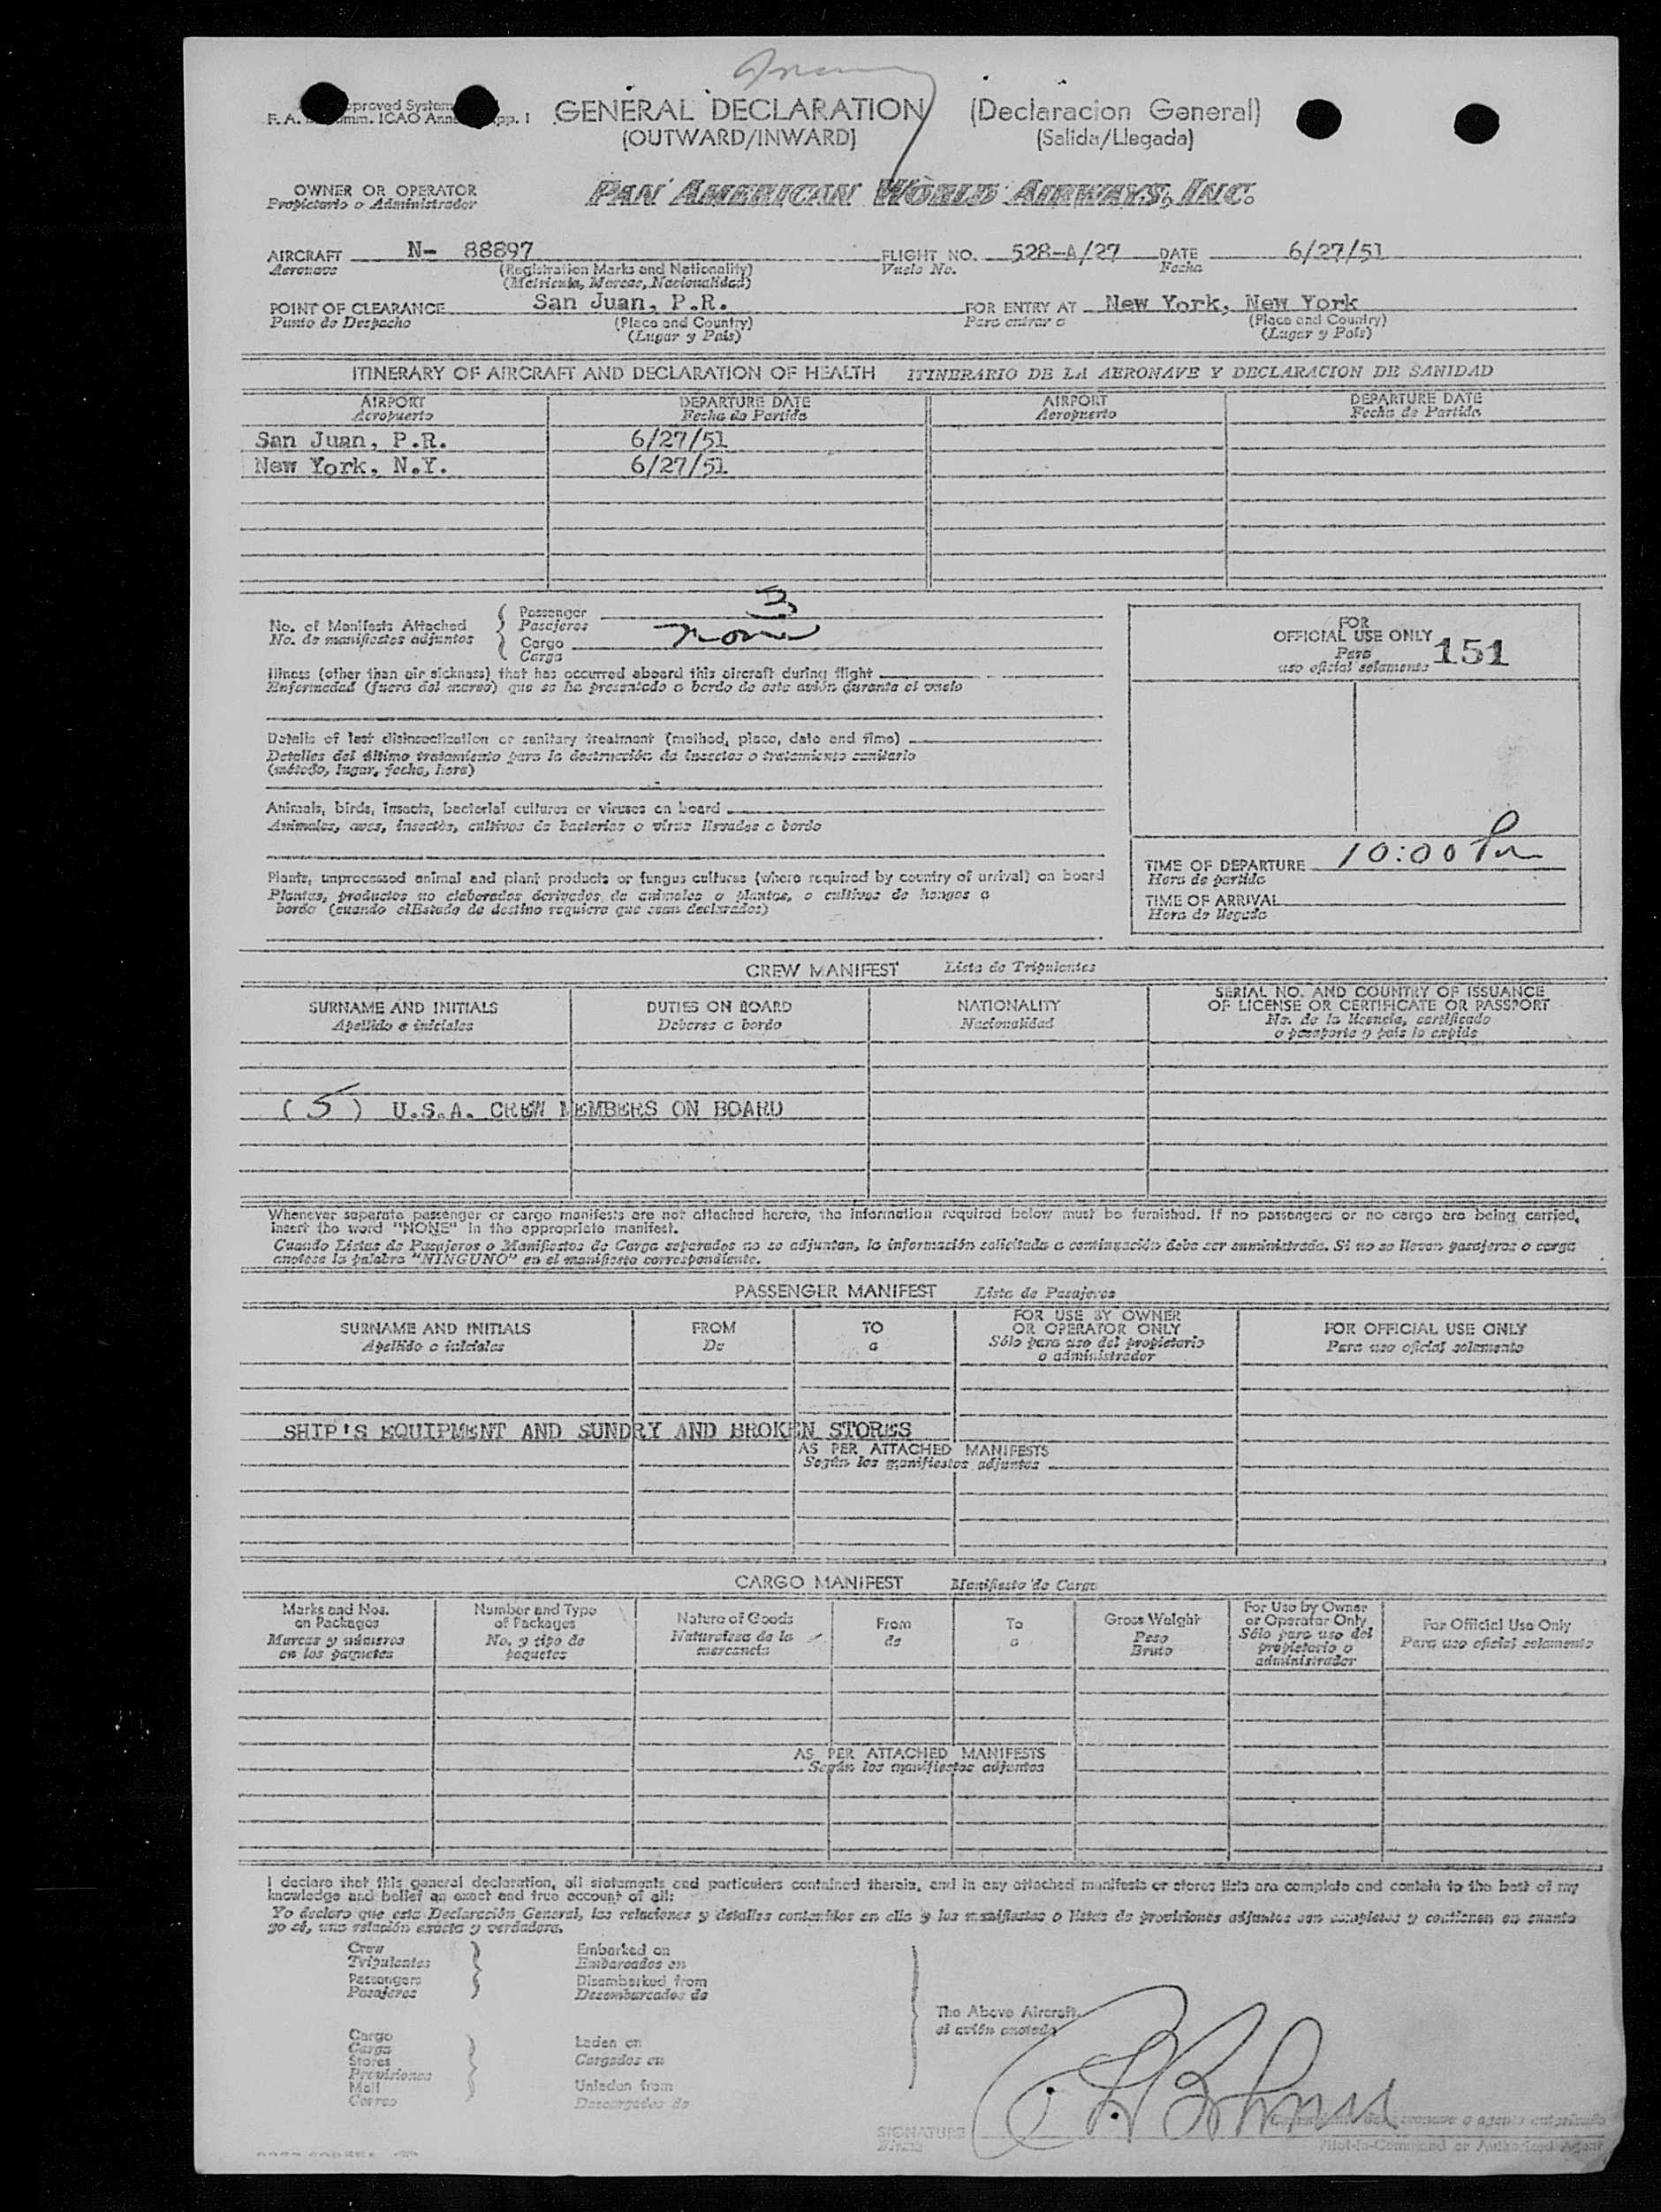 GENERAL DECLARATION (Declaracion General)
(OUTWARD/INWARD) (Salida/Llegada)
OWNER OR OPERATOR
Propietario o Administrador
PAN AMERICAN WORLD AIRWAYS, INC.
AIRCRAFT N- 88897 FLIGHT NO. 528-A/27 DATE 6/27/51
Aeronave (Registration Marks and Nationality) Vuelo No. Fecha
(Matricula, Marcas, Nacionalidad)
POINT OF CLEARANCE San Juan, P.R. FOR ENTRY AT New York, New York
Punto de Despacho (Place and Country) Para entrar a (Place and Country)
(Lugar y País) (Lugar y País)
ITINERARY OF AIRCRAFT AND DECLARATION OF HEALTH ITINERARIO DE LA AERONAVE Y DECLARACION DE SANIDAD
AIRPORT DEPARTURE DATE AIRPORT DEPARTURE DATE
Aeropuerto Fecha de Partida Aeropuerto Fecha de Partida
San Juan, P.R. 6/27/51
New York, N.Y. 6/27/51
No. of Manifests Attached
No. de manifiestos adjuntos
Passenger
Pasajeros
Cargo none
Carga
FOR
OFFICIAL USE ONLY
Para
uso oficial solamente
151
Illness (other than air sickness) that has occurred aboard this aircraft during flight
Enfermedad (fuera del mareo) que se ha presentado a bordo de este avión durante el vuelo
Details of last disinsectization or sanitary treatment (method, place, date and time)
Detalles del último tratamiento para la destrucción de insectos o tratamiento sanitario
(método, lugar, fecha, hora)
Animals, birds, insects, bacterial cultures or viruses on board
Animales, aves, insectos, cultivos de bacterias o virus llevados a bordo
Plants, unprocessed animal and plant products or fungus cultures (where required by country of arrival) on board
Plantas, productos no elaborados derivados de animales o plantas, o cultivos de hongos a
bordo (cuando el Estado de destino requiera que sean declarados)
TIME OF DEPARTURE 10:00 Pm
Hora de partida
TIME OF ARRIVAL
Hora de llegada
CREW MANIFEST Lista de Tripulantes
SURNAME AND INITIALS DUTIES ON BOARD NATIONALITY SERIAL NO. AND COUNTRY OF ISSUANCE
OF LICENSE OR CERTIFICATE OR PASSPORT
Apellido e iniciales Deberes a bordo Nacionalidad No. de la licencia, certificado
o pasaporte y país lo expide
(5) U.S.A. CREW MEMBERS ON BOARD
Whenever separate passenger or cargo manifests are not attached hereto, the information required below must be furnished. If no passengers or no cargo are being carried,
insert the word "NONE" in the appropriate manifest.
Cuando Listas de Pasajeros o Manifiestos de Carga separados no se adjuntan, la información solicitada a continuación debe ser suministrada. Si no se llevan pasajeros o carga
anotese la palabra "NINGUNO" en el manifiesto correspondiente.
PASSENGER MANIFEST Lista de Pasajeros
SURNAME AND INITIALS FROM TO FOR USE BY OWNER
OR OPERATOR ONLY FOR OFFICIAL USE ONLY
Apellido e iniciales De a Sólo para uso del propietario
o administrador Para uso oficial solamente
SHIP'S EQUIPMENT AND SUNDRY AND BROKEN STORES
AS PER ATTACHED MANIFESTS
Según los manifiestos adjuntos
CARGO MANIFEST Manifiesto de Carga
Marks and Nos.
on Packages
Marcas y números
en los paquetes
Number and Type
of Packages
No. y tipo de
paquetes
Nature of Goods
Naturaleza de la
mercancía
From
de
To
a
Gross Weight
Peso
Bruto
For Use by Owner
or Operator Only
Sólo para uso del
propietario o
administrador
For Official Use Only
Para uso oficial solamente
AS PER ATTACHED MANIFESTS
Según los manifiestos adjuntos
I declare that this general declaration, all statements and particulars contained therein, and in any attached manifests or stores lists are complete and contain to the best of my
knowledge and belief an exact and true account of all:
Yo declaro que esta Declaración General, las relaciones y detalles contenidos en ella y los manifiestos o listas de provisiones adjuntos son completos y contienen en cuanto
yo sé, una relación exacta y verdadera.
Crew
Tripulantes
Passengers
Pasajeros
Embarked on
Embarcados en
Disembarked from
Desembarcados de
Cargo
Carga
Stores
Provisiones
Mail
Correo
Laden on
Cargados en
Unladen from
Descargados de
The Above Aircraft
el avión anotado
SIGNATURE
Firma
Pilot-in-Command or Authorized Agent